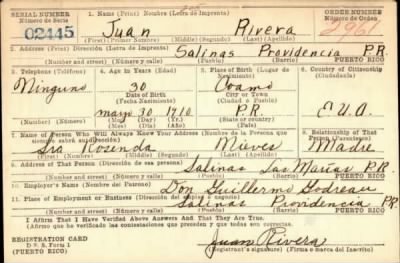 SERIAL NUMBER 1. Name (Print) Nombre (Letra de Imprenta) ORDER NUMBER
Número de Serie Número de Orden
02445 Juan Rivera 2961
(First) (Primer Nombre) (Middle) (Segundo) (Last) (Apellido)
2. Address (Print) Dirección (Letra de Imprenta)
Salinas Providencia P.R.
(Number and street) (Número y calle) (Town) (Pueblo) (Barrio) PUERTO RICO
3. Telephone (Teléfono) 4. Age in Years (Edad) 5. Place of Birth (Lugar de Nacimiento) 6. Country of Citizenship (Ciudadanía)
Ninguno 30 Coamo
Date of Birth City or Town
(Fecha Nacimiento) (Ciudad o Pueblo)
mayo 30 1910 P.R. E.U.A.
(Number) (Número) (Mo.) (Mes) (Day) (Día) (Yr.) (Año) (State or country) (Estado o país)
7. Name of Person Who Will Always Know Your Address (Nombre de la Persona que siempre sabrá su dirección) 8. Relationship of That Person (Parentesco)
Sra Rosenda Nieves Madre
(First) (Primer nombre) (Middle) (Segundo) (Last) (Apellido)
9. Address of That Person (Dirección de esa persona)
Salinas Las Marías P.R.
(Number and street) (Número y calle) (Town) (Pueblo) (Barrio) PUERTO RICO
10. Employer's Name (Nombre del Patrono)
Don Guillermo Godreau
11. Place of Employment or Business (Dirección del empleo o negocio)
Salinas Providencia P.R.
(Number and street) (Número y calle) (Town) (Pueblo) (Barrio) PUERTO RICO
I Affirm That I Have Verified Above Answers And That They Are True.
(Afirmo que he verificado las contestaciones que preceden y que todas son correctas).
REGISTRATION CARD Juan Rivera
D. S. S. Form 1 Registrant's signature (Firma o marca del Inscrito)
(PUERTO RICO)